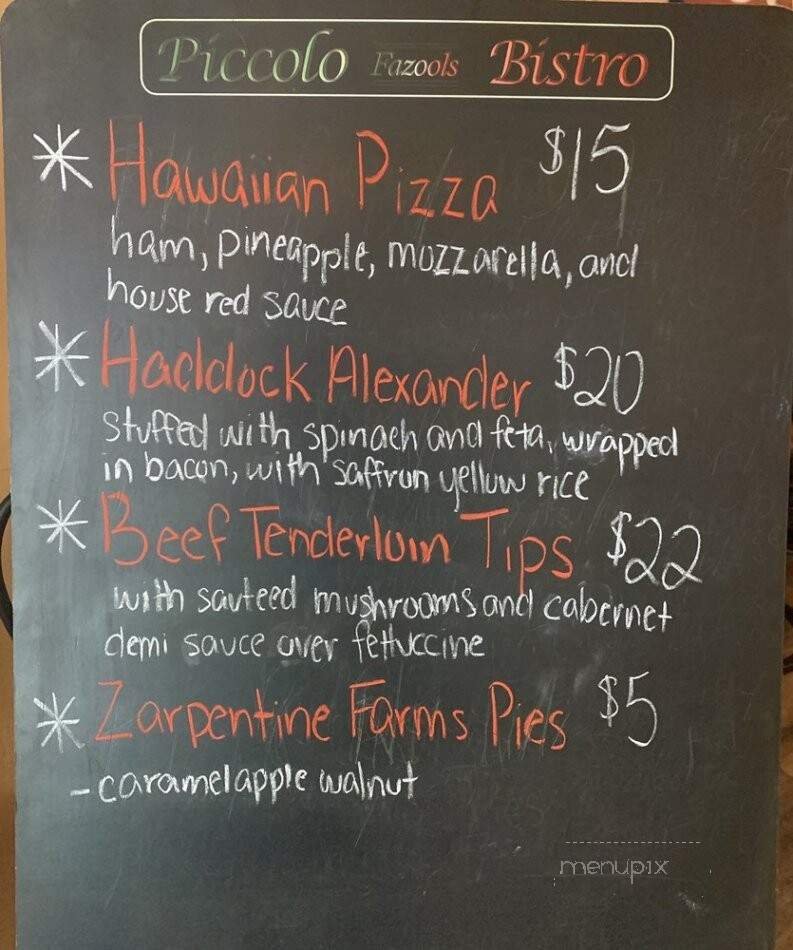 Piccolo Fazools Bistro
* Hawaiian Pizza $15
ham, pineapple, mozzarella, and
house red sauce
* Haddock Alexander $20
stuffed with spinach and feta, wrapped
in bacon, with saffron yellow rice
* Beef Tenderloin Tips $22
with sauteed mushrooms and cabernet
demi sauce over fettuccine
* Zarpentine Farms Pies $5
- caramel apple walnut
menupix